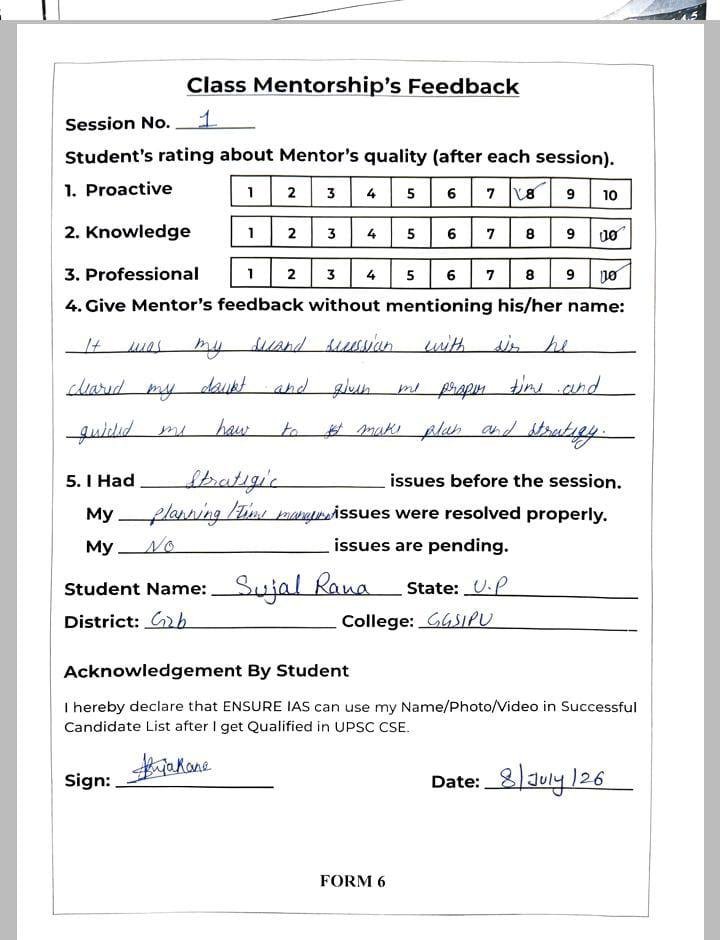 Class Mentorship's Feedback
Session No. 1
Student's rating about Mentor's quality (after each session).
1. Proactive 1 2 3 4 5 6 7 8 9 10
2. Knowledge 1 2 3 4 5 6 7 8 9 10
3. Professional 1 2 3 4 5 6 7 8 9 10
4. Give Mentor's feedback without mentioning his/her name:
It was my with sir he
my doubt and given me proper time and
guided me how to make plan and strategy.
5. I Had Strategic issues before the session.
My planning/Time issues were resolved properly.
My NO issues are pending.
Student Name: Sujal Rana State: U.P
District: Gzb College: GGSIPU
Acknowledgement By Student
I hereby declare that ENSURE IAS can use my Name/Photo/Video in Successful
Candidate List after I get Qualified in UPSC CSE.
Sign: Date: 8/July/26
FORM 6